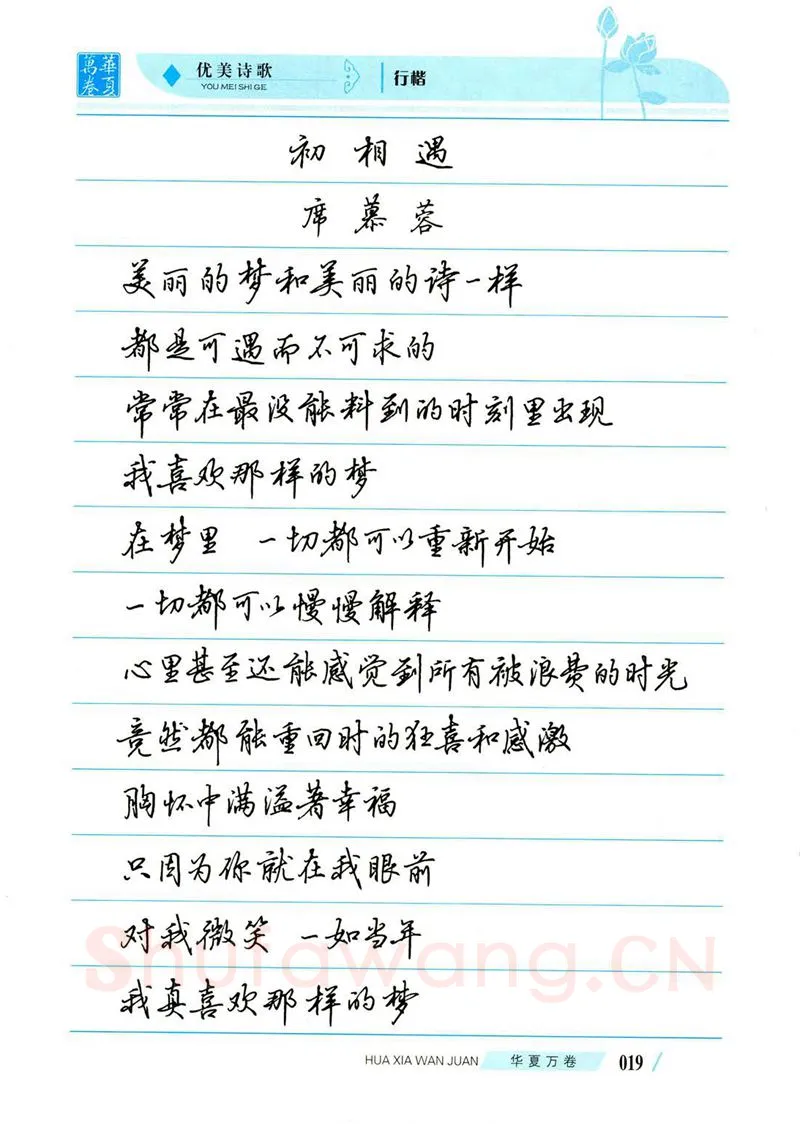 華夏
萬卷
优美诗歌
YOU MEI SHI GE
行楷
初相遇
席慕蓉
美丽的梦和美丽的诗一样
都是可遇而不可求的
常常在最没能料到的时刻里出现
我喜欢那样的梦
在梦里 一切都可以重新开始
一切都可以慢慢解释
心里甚至还能感觉到所有被浪费的时光
竟然都能重回时的狂喜和感激
胸怀中满溢著幸福
只因为你就在我眼前
对我微笑 一如当年
我真喜欢那样的梦
Shufawang.CN
HUA XIA WAN JUAN
华夏万卷
019